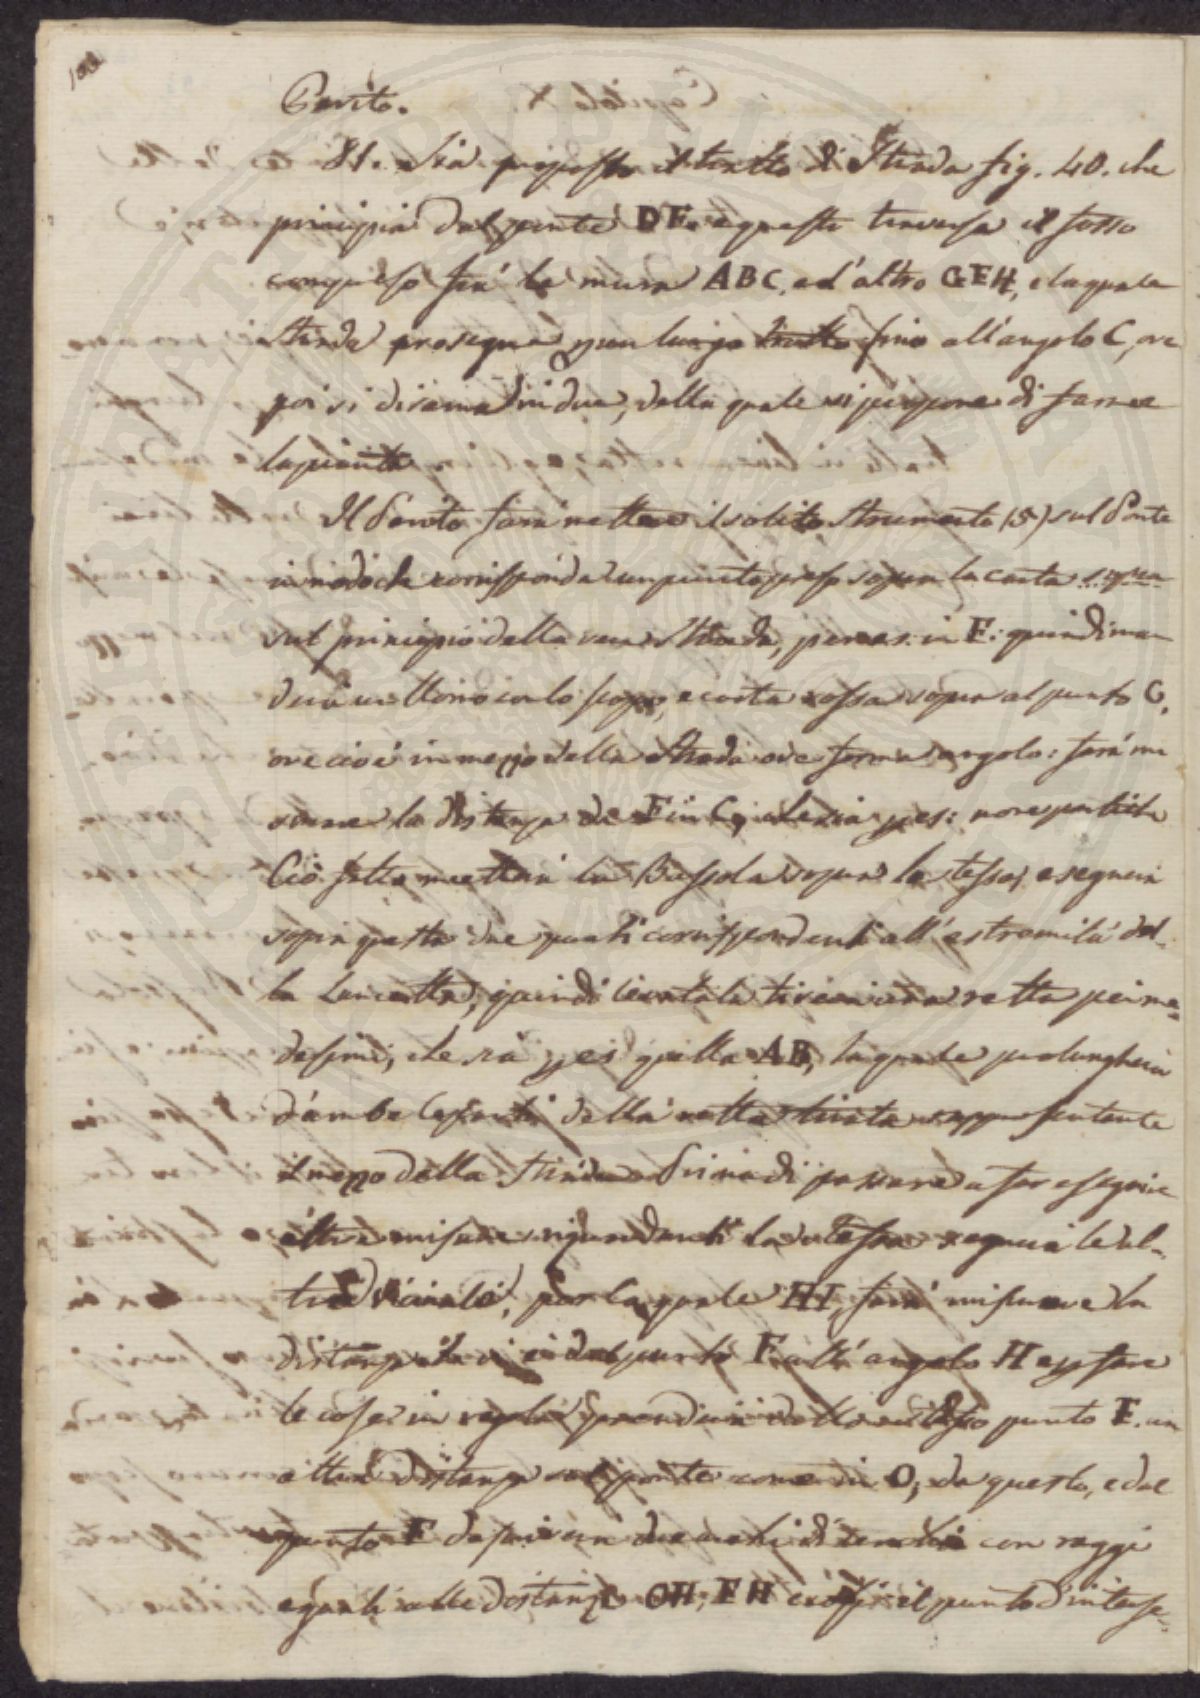 100
Perito.
81. Sia proposto il tratto di Strada fig. 40. che
principia dal ponte DE. e questi traversa il fosso
compreso frà le mura ABC, ed'altro GEH, e la quale
strada prosegue p un lungo tratto fino all'angolo C, ove
poi si dirama in due, della quale si propone di farne
la pianta.
Il Perito farà mettere il solito strumento (5) sul Ponte
in modo che corrisponda un punto preso sopra la carta sopra
sul principio della vera strada, per es: in F: quindi man
derà un Uomo con lo scopo, e carta rossa sopra al punto C,
ove cioè in mezzo della strada ove forma angolo: farà mi
surare la distanza da F in C, che sia p es: nove pertiche
Ciò fatto metterà la Bussola sopra la stessa, e segnerà
sopra questa due punti corrispondenti all'estremità del-
la Lancetta, quindi levatala tirerà una retta pei me=
desimi, che sia p es: quella AB, la quale prolungherà
d'ambe le parti della retta tirata rappresentante
il mezzo della strada. Prima di passare a far eseguire
altre misure riguardanti la stessa segnerà le al-
tre vicinali, per la quale HI, farà misurare la
distanza che vi è dal punto F all'angolo H e p fare
le cose in regola prenderà dallo stesso punto F. un
altra distanza sul ponte come in O, da questo, e dal
punto F descriverà due archi di cerchio con raggi
eguali alle distanze OH, FH ed il punto d'interse=